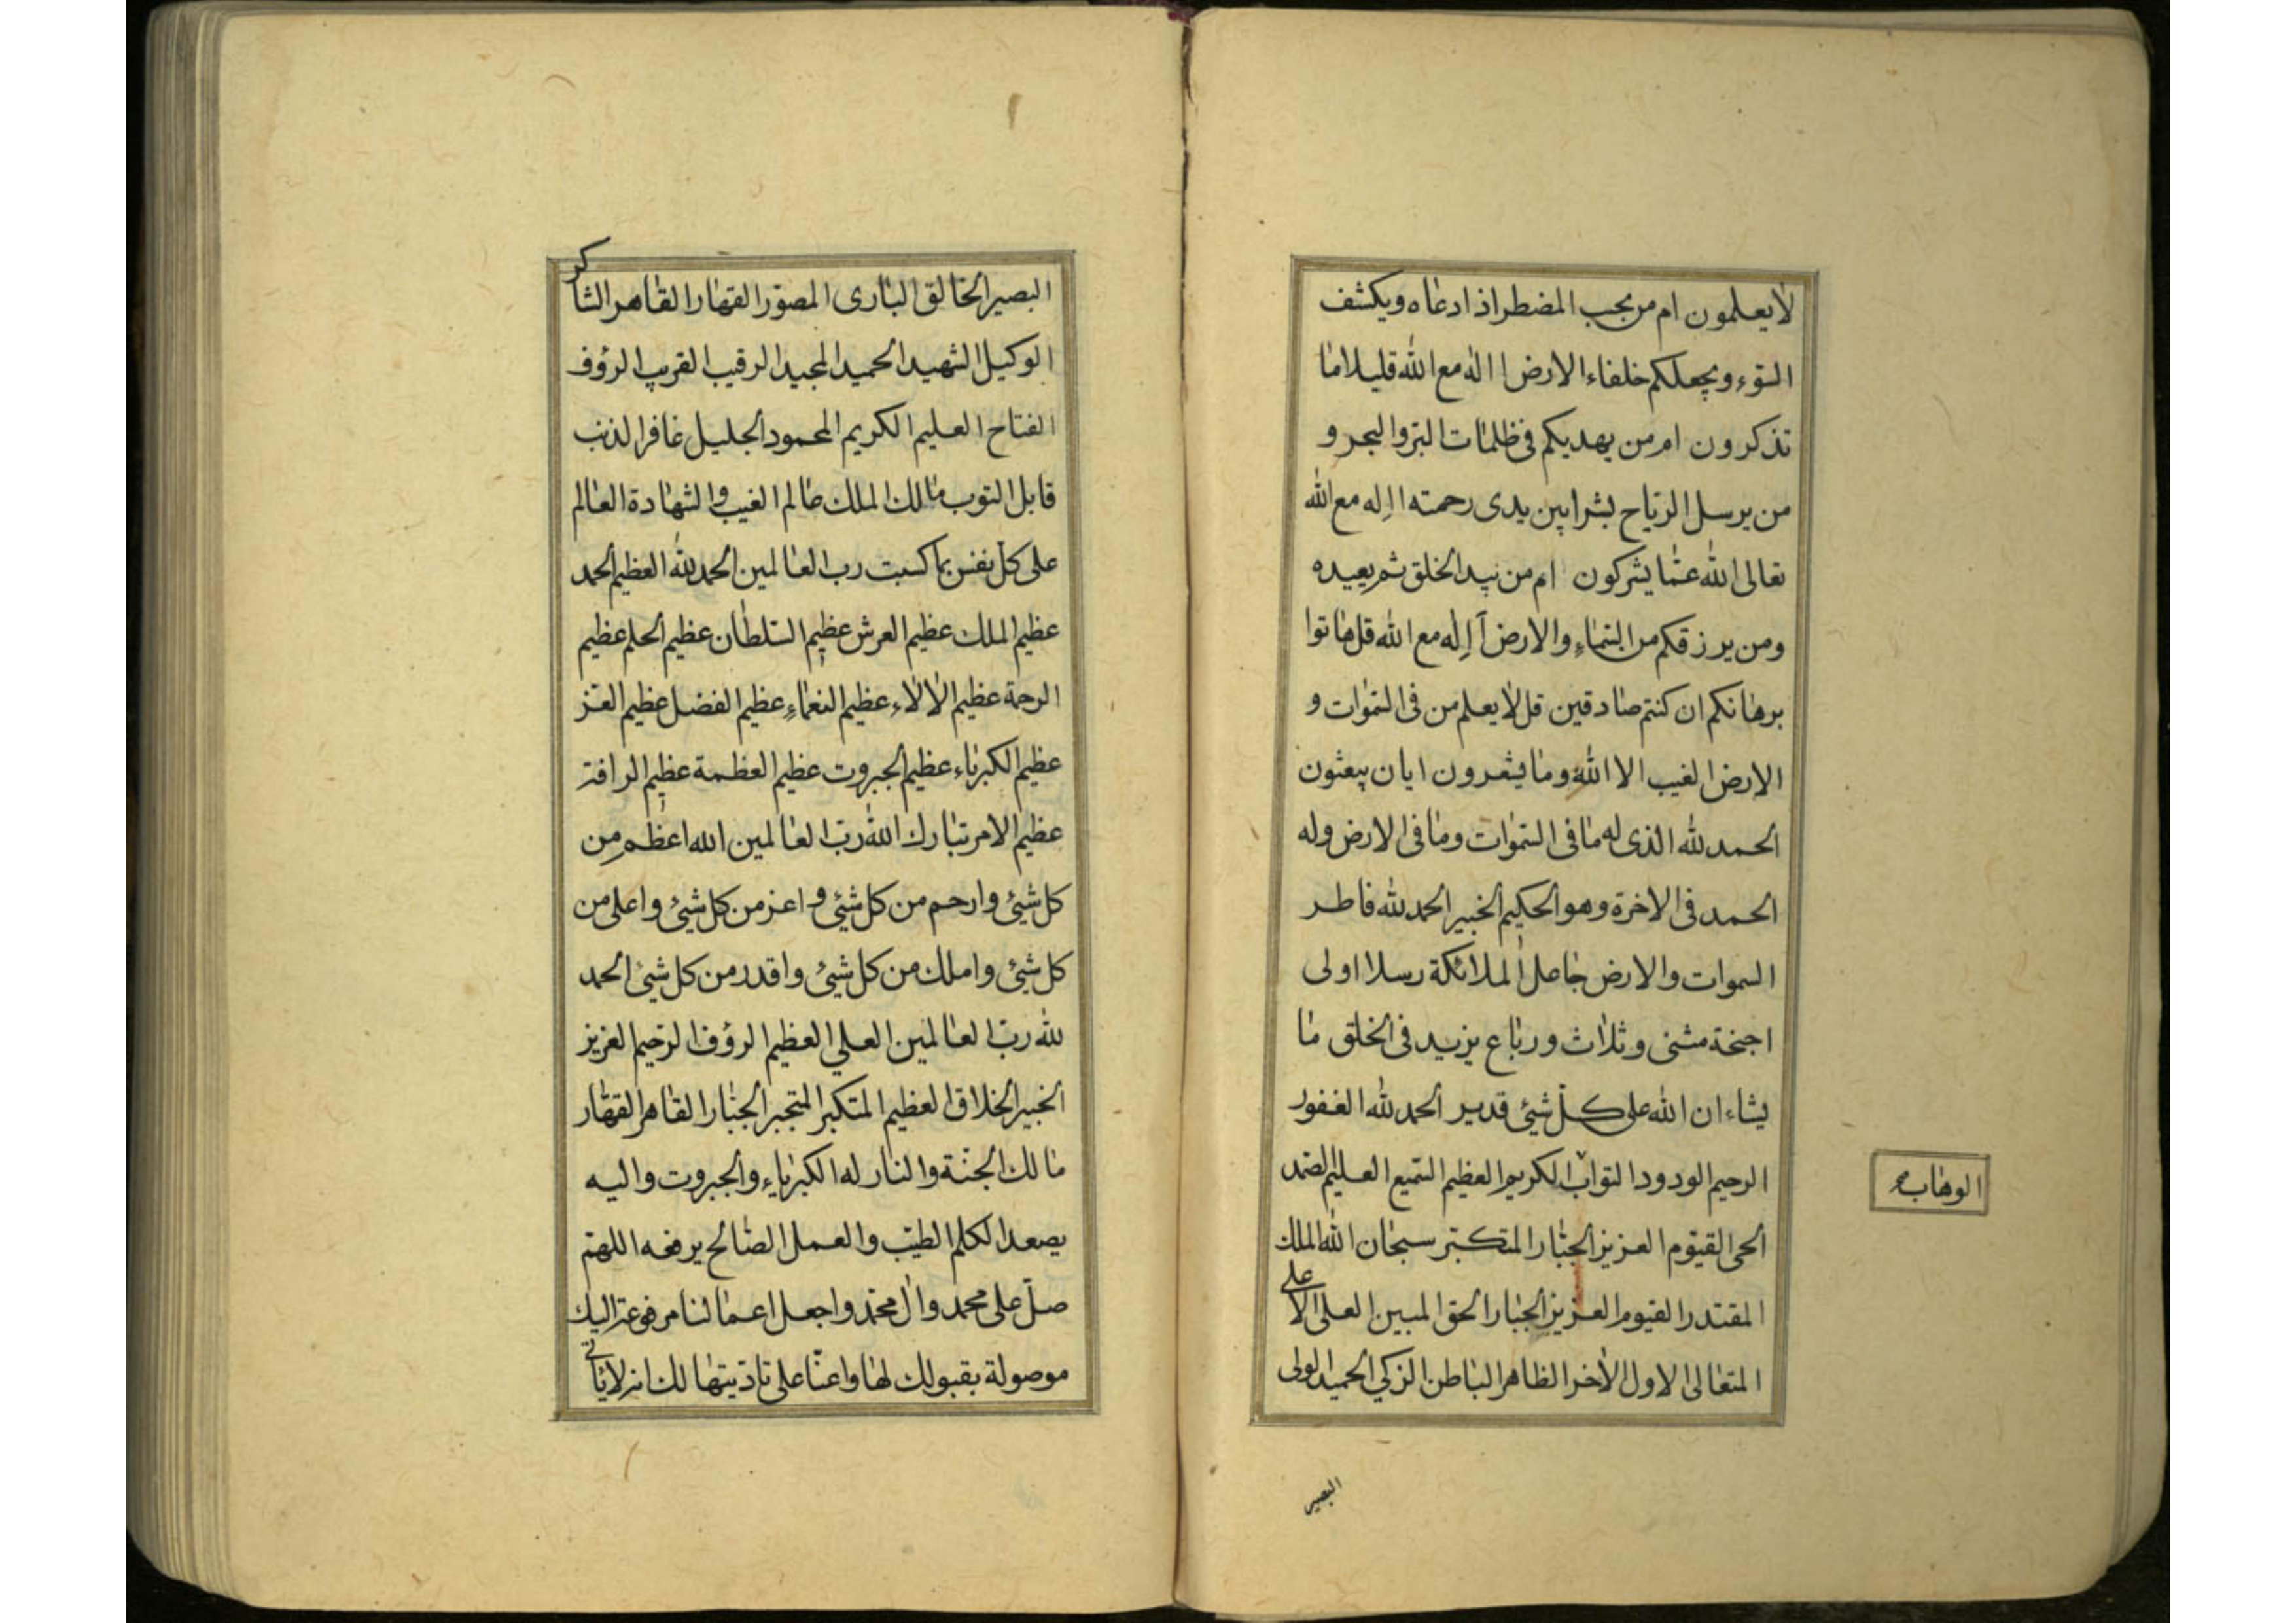 لا يعلمون ام من يجيب المضطر اذا دعاه ويكشف
السوء ويجعلكم خلفاء الارض االه مع الله قليلا ما
تذكرون ام من يهديكم فى ظلمات البر والبحر و
من يرسل الرياح بشرا بين يدى رحمته ااِله مع الله
تعالى الله عمّا يشركون ام من يبدا الخلق ثم يعيده
ومن يرزقكم من السماءِ والارض أاِله مع الله قل هاتوا
برهانكم ان كنتم صادقين قل لا يعلم من فى السموات و
الارض الغيب الا الله وما يشعرون ايان يبعثون
الحمد لله الذى له ما فى السموات وما فى الارض وله
الحمد فى الاخرة وهو الحكيم الخبير الحمد لله فاطر
السموات والارض جاعل الملائكة رسلا اولى
اجنحة مثنى وثلاث ورباع يزيد فى الخلق ما
يشاء ان الله على كلّ شيئ قدير الحمد لله الغفور
الرحيم الودود التواب الكريم العظيم السميع العليم الصمد
الوهاب
الحى القيّوم العزيز الجبّار المتكبّر سبحان الله الملك
المقتدر القيوم العزيز الجبار الحق المبين العلى الاعلى
المتعالى الاول الاخر الظاهر الباطن الزكي الحميد الولى
البصير
البصير الخالق البارى المصوّر القهار القاهر الشاكر
الوكيل الشهيد الحميد المجيد الرقيب القريب الرؤوف
الفتاح العليم الكريم المحمود الجليل غافر الذنب
قابل التوب مالك الملك عالم الغيب والشهادة العالم
على كل نفس بما كسبت رب العالمين الحمد لله العظيم الحمد
عظيم الملك عظيم العرش عظيم السلطان عظيم الحلم عظيم
الرحمة عظيم الالاء عظيم النعماءِ عظيم الفضل عظيم العز
عظيم الكبرياء عظيم الجبروت عظيم العظمة عظيم الرافة
عظيم الامر تبارك الله ربّ العالمين الله اعظم من
كل شيئ وارحم من كل شيئ واعز من كل شيئ واعلى من
كل شيئ واملك من كل شيئ واقدر من كل شيئ الحمد
لله ربّ العالمين العلي العظيم الرؤف الرّحيم العزيز
الخبير الخلاق العظيم المتكبر المتجبر الجبّار القاهر القهّار
مالك الجنّة والنار له الكبرياء والجبروت واليه
يصعد الكلم الطيّب والعمل الصّالح يرفعه اللهمّ
صلّ على محمد وال محمّد واجعل اعمالنا مرفوعة اليك
موصولة بقبولك لها واعنّا على تاديتها لك انه لا ياتى